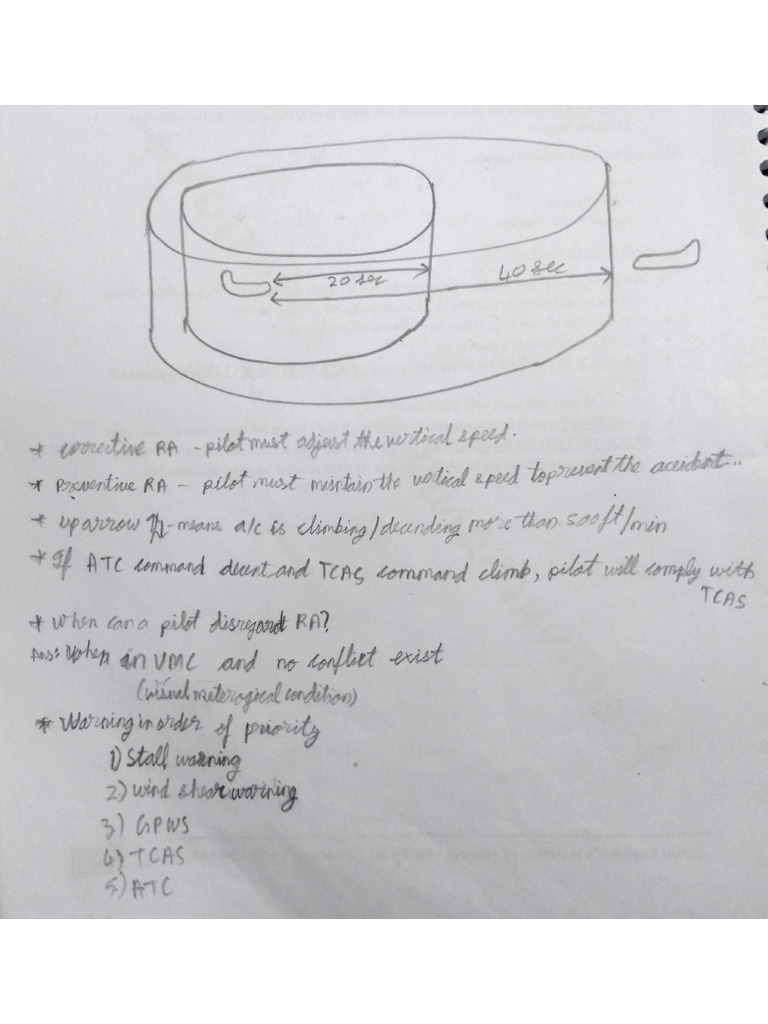 20 sec
40 sec
* corrective RA - pilot must adjust the vertical speed.
* Preventive RA - pilot must mintain the vertical speed to prevent the accident...
* up arrow ↑↓ - means a/c is climbing/decending more than 500ft/min
* If ATC command decent and TCAS command climb, pilot will comply with
TCAS
* When can a pilot disregard RA?
Ans: When in VMC and no conflict exist
(visual meterogical condition)
* Warning in order of priority
1) Stall warning
2) wind shear warning
3) GPWS
4) TCAS
5) ATC